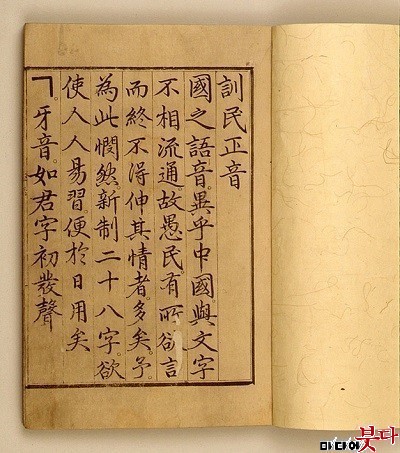 訓民正音
國之語音。異乎中國與文字
不相流通故愚民有所欲言
而終不得伸其情者多矣。予
為此憫然新制二十八字。欲
使人人易習。便於日用矣
ㄱ。牙音。如君字初發聲
미디어붓다